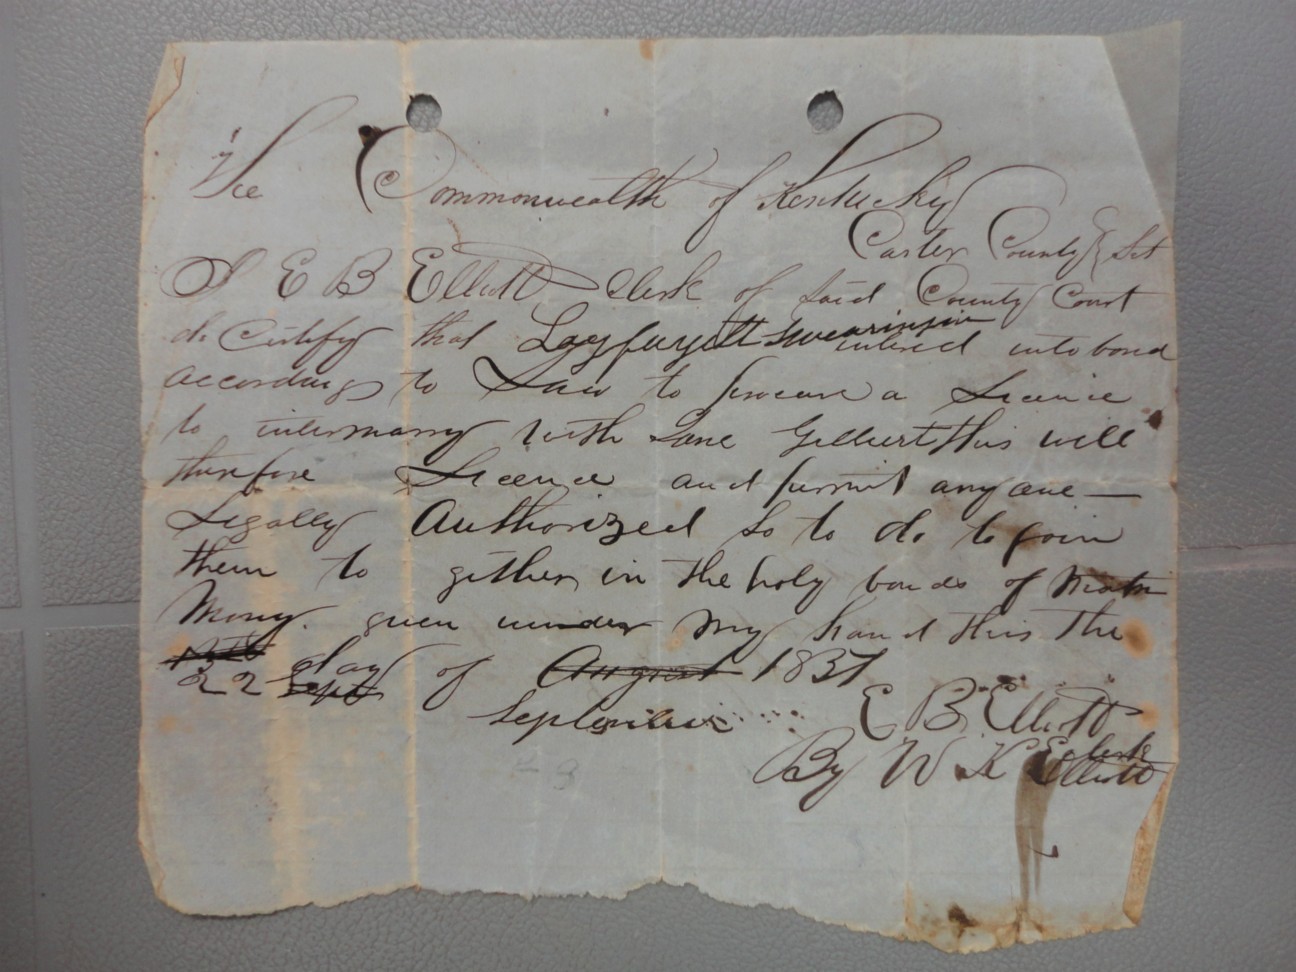 The Commonwealth of Kentucky
Carter County } Sct
I E B Elliott Clerk of said County Court
do Certify that Layfayett Swearingin entered into bond
according to Law to procure a Licence
to intermarry with Jane Gilbert this will
therefore Licence and permit any one —
Legally Authorized so to do to join
them to gether in the holy bonds of Matri
Mony. given under My hand this the
22 day of August 1857
Sept
September
E B Elliott
Clerk
By W K Elliott